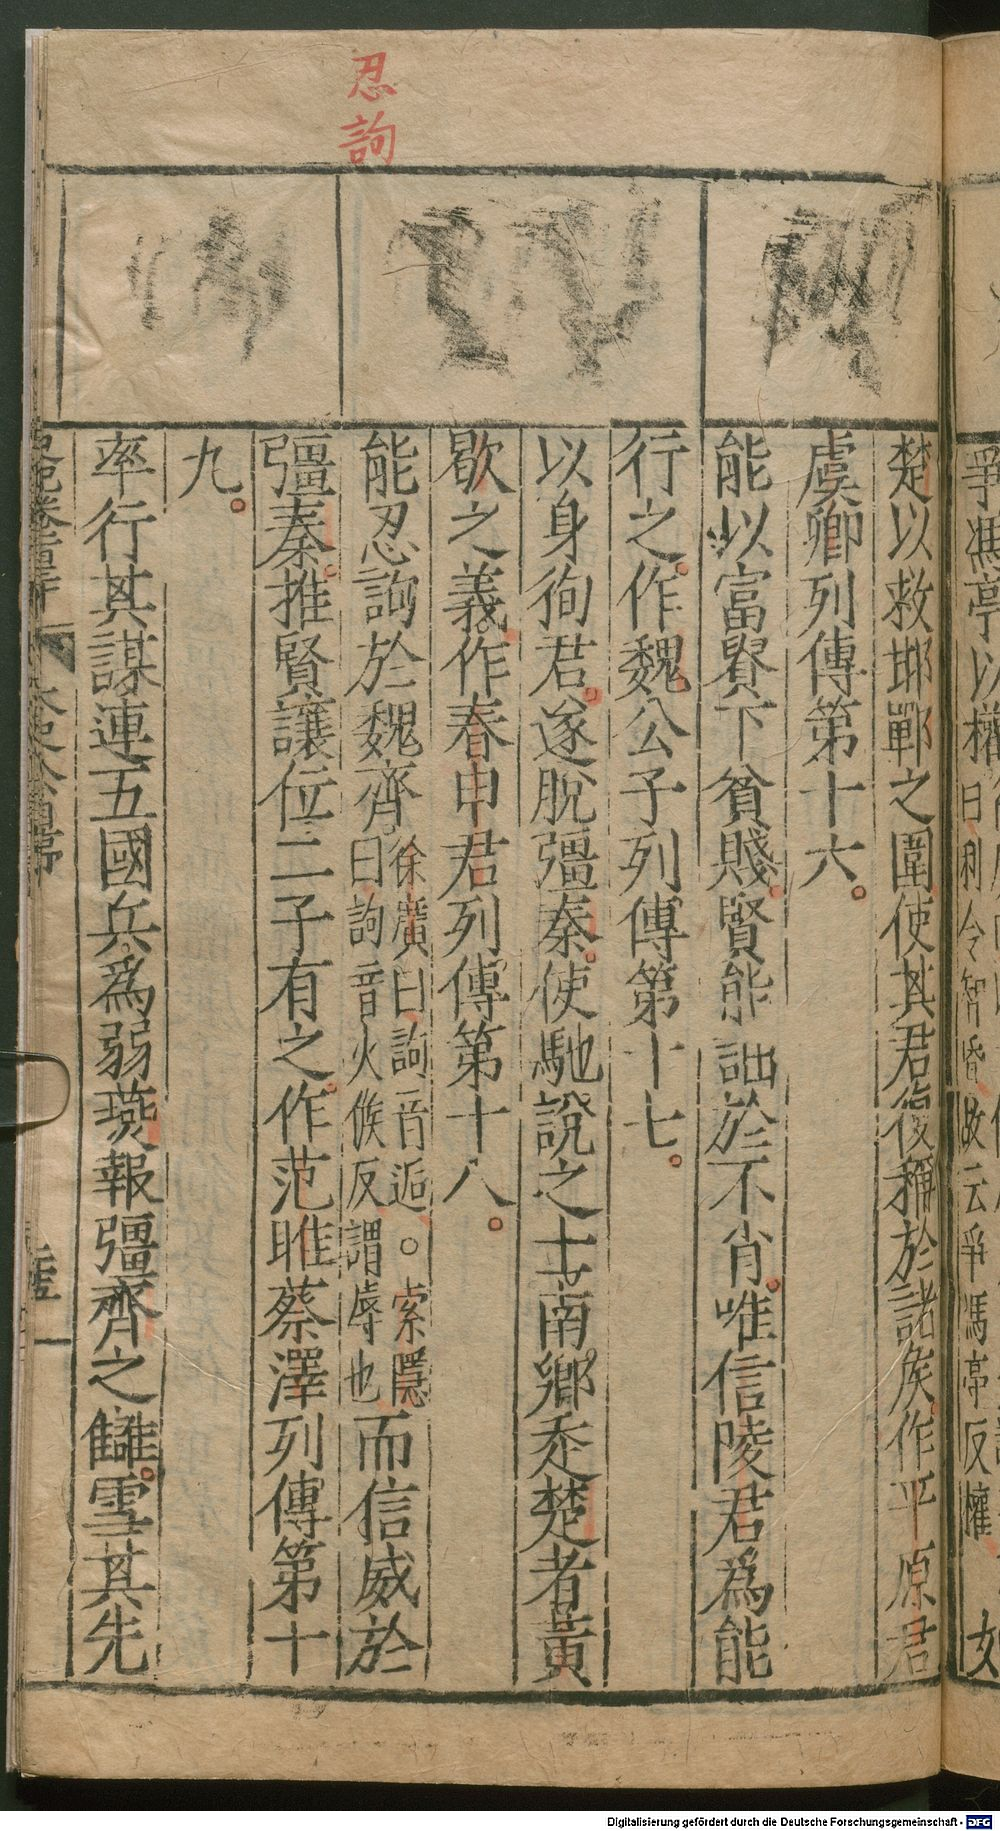 忍訽
楚以救邯鄲之圍使其君復稱於諸侯作平原君
虞卿列傳第十六。
能以富貴下貧賤。賢能詘於不肖。唯信陵君爲能
行之。作魏公子列傳第十七。
以身徇君。遂脫彊秦。使馳說之士南鄉走楚者黃
歇之義。作春申君列傳第十八。
能忍訽於魏齊徐廣曰訽音逅。○索隱曰訽音火候反謂辱也而信威於
彊秦。推賢讓位二子有之。作范睢蔡澤列傳第十
九。
率行其謀連五國兵。爲弱燕報彊齊之讎。雪其先
Digitalisierung gefördert durch die Deutsche Forschungsgemeinschaft - DFG